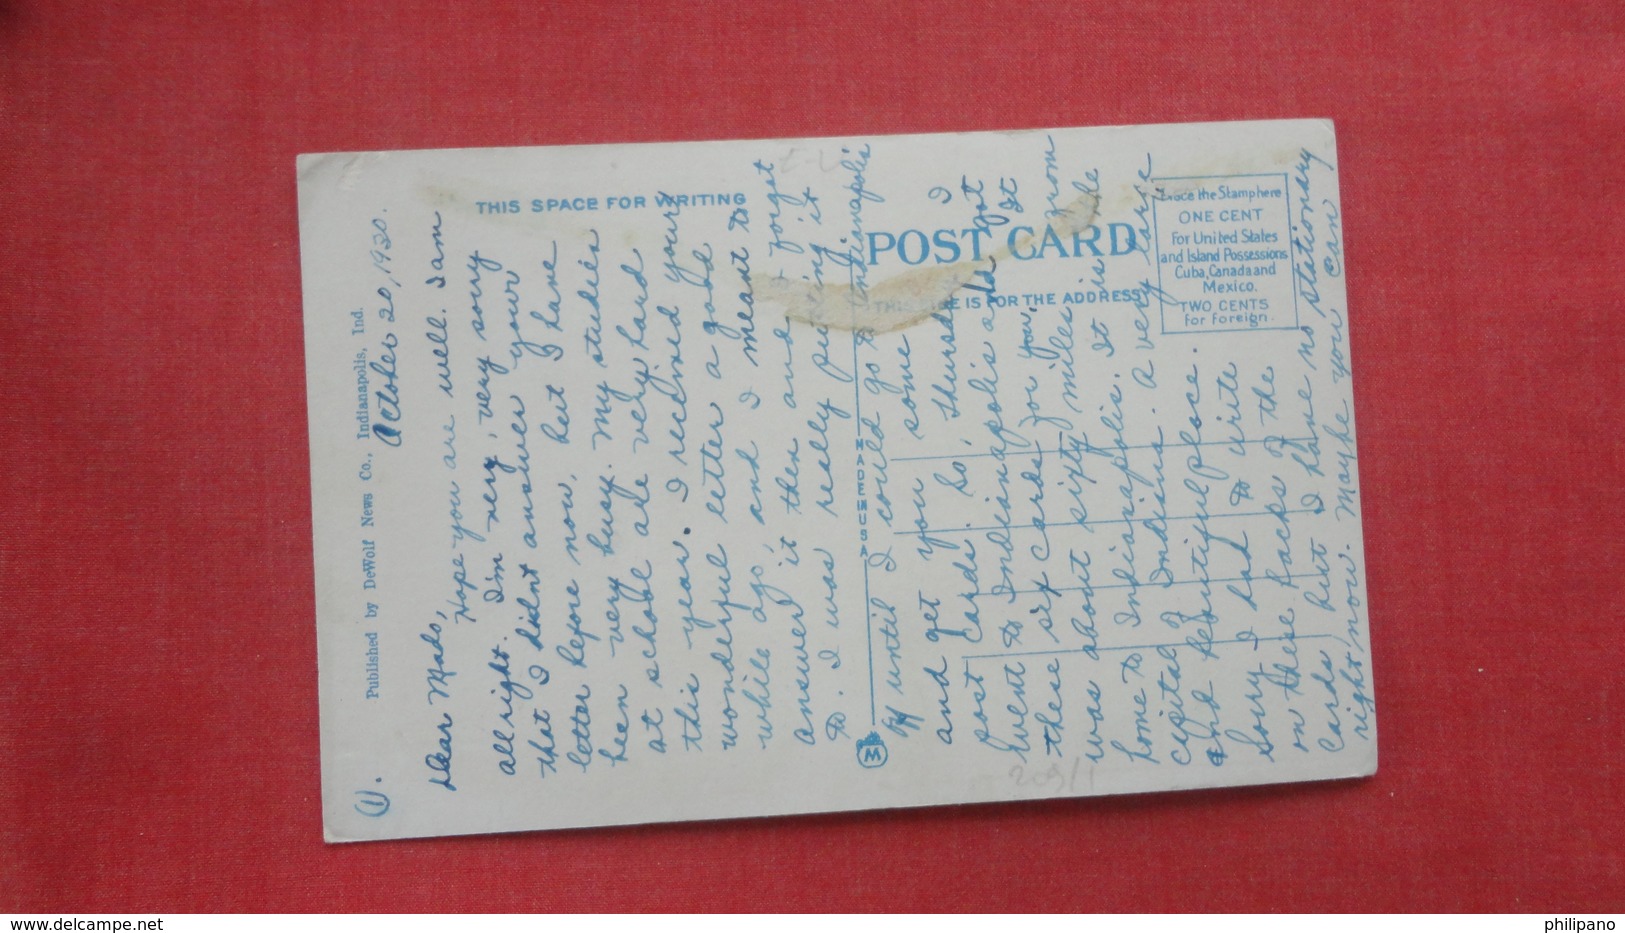 (1).
Published by DeWolf News Co., Indianapolis, Ind.
October 20, 1930.
Dear Mado,
Hope you are well. I am
allright. I'm very, very sorry
that I didnt answer your
letter before now, but I have
been very busy. My studies
at school are very hard
this year. I received your
wonderful letter a good
while ago, and I meant to
answer it then and I forgot
to. I was really putting it
off until I could go to Indianapolis
and get you some
post cards. So, Thursday I
went to Indianapolis and got
these six cards for you. It
was about sixty miles from
home to Indianapolis. It is the
capital of Indiana. A very large
and beautiful place.
Sorry I had to write
on these backs of the
cards but I have no stationary
right now. Maybe you can
THIS SPACE FOR WRITING
MADE IN USA
POST CARD
THIS SIDE IS FOR THE ADDRESS
Place the Stamp here
ONE CENT
For United States
and Island Possessions
Cuba, Canada and
Mexico.
TWO CENTS
For Foreign.
delcampe.net
philipano